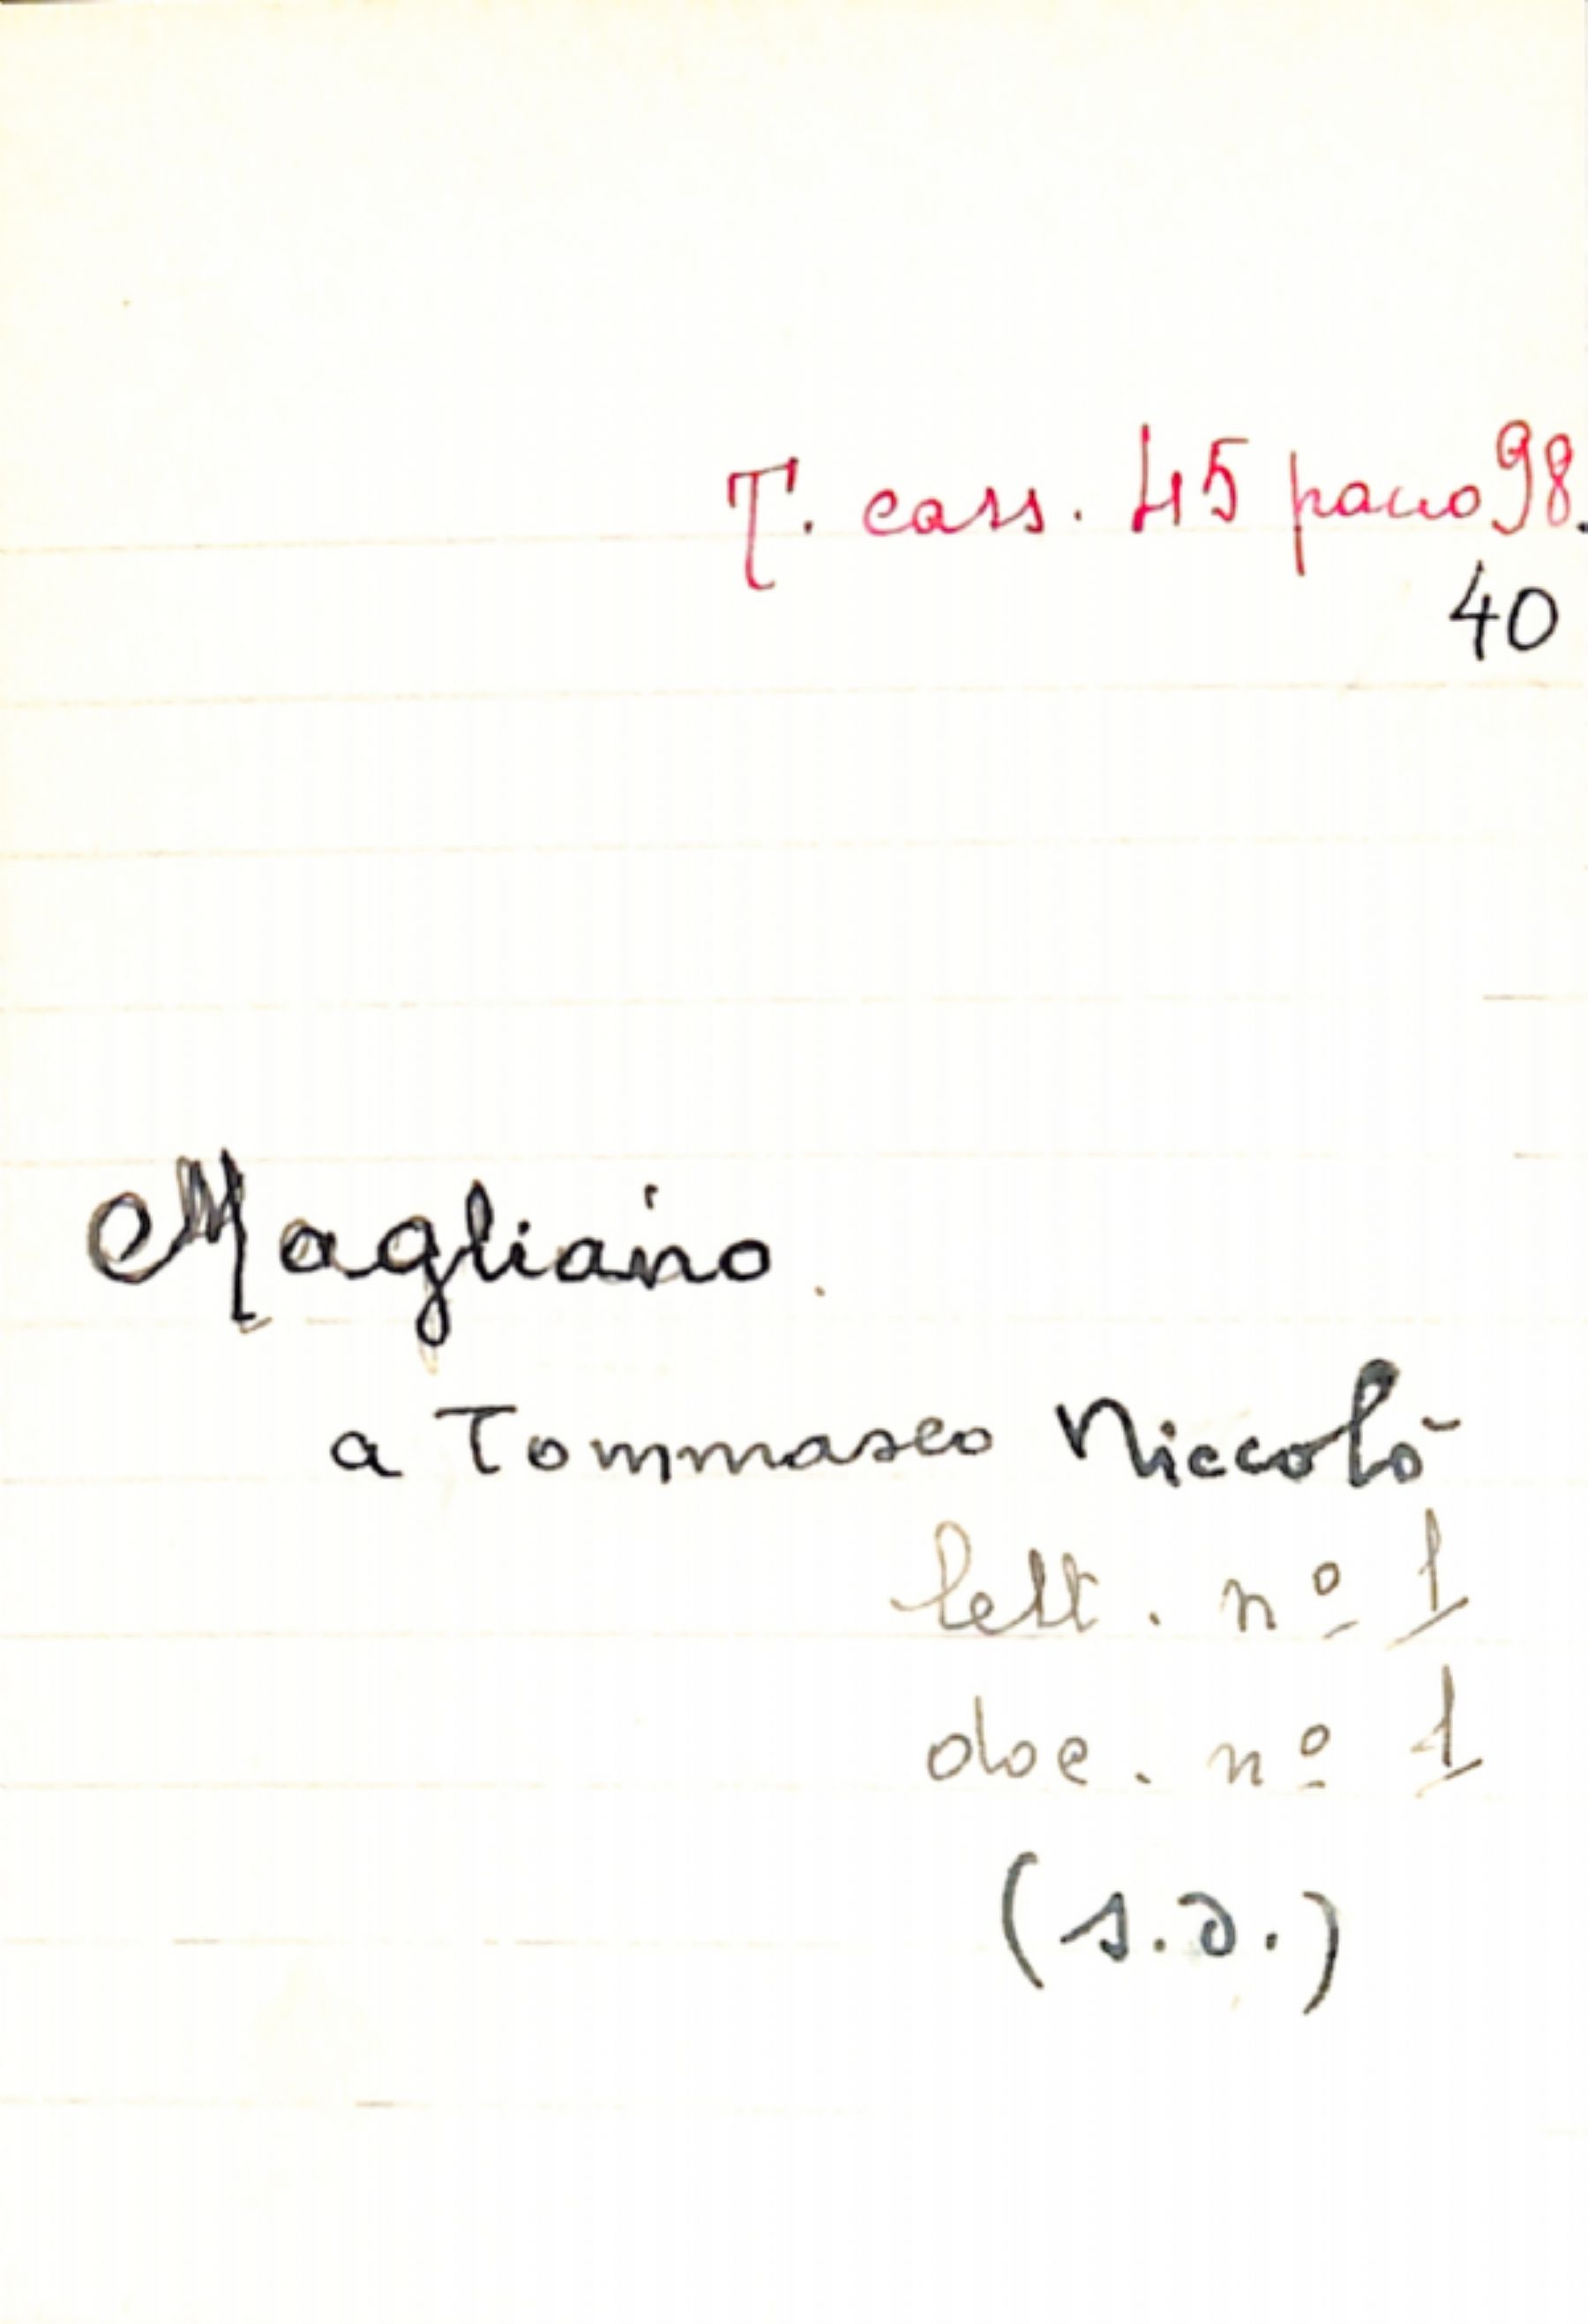 T. cass. 45 pacco 98.
40
Magliano.
a Tommaseo Niccolò
lett. nº 1
doc. nº 1
(s.d.)